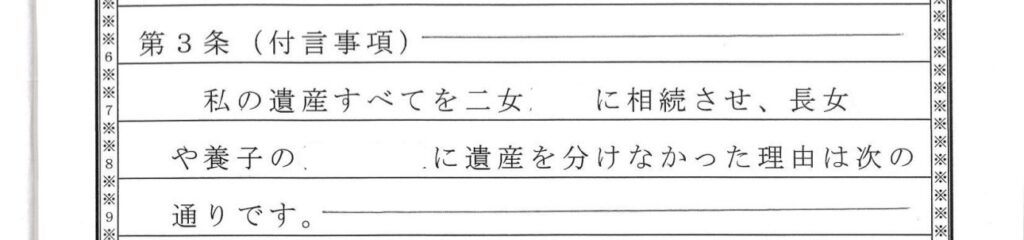 第３条（付言事項）
6
私の遺産すべてを二女　　に相続させ、長女
7
や養子の　　　　に遺産を分けなかった理由は次の
8
通りです。
9